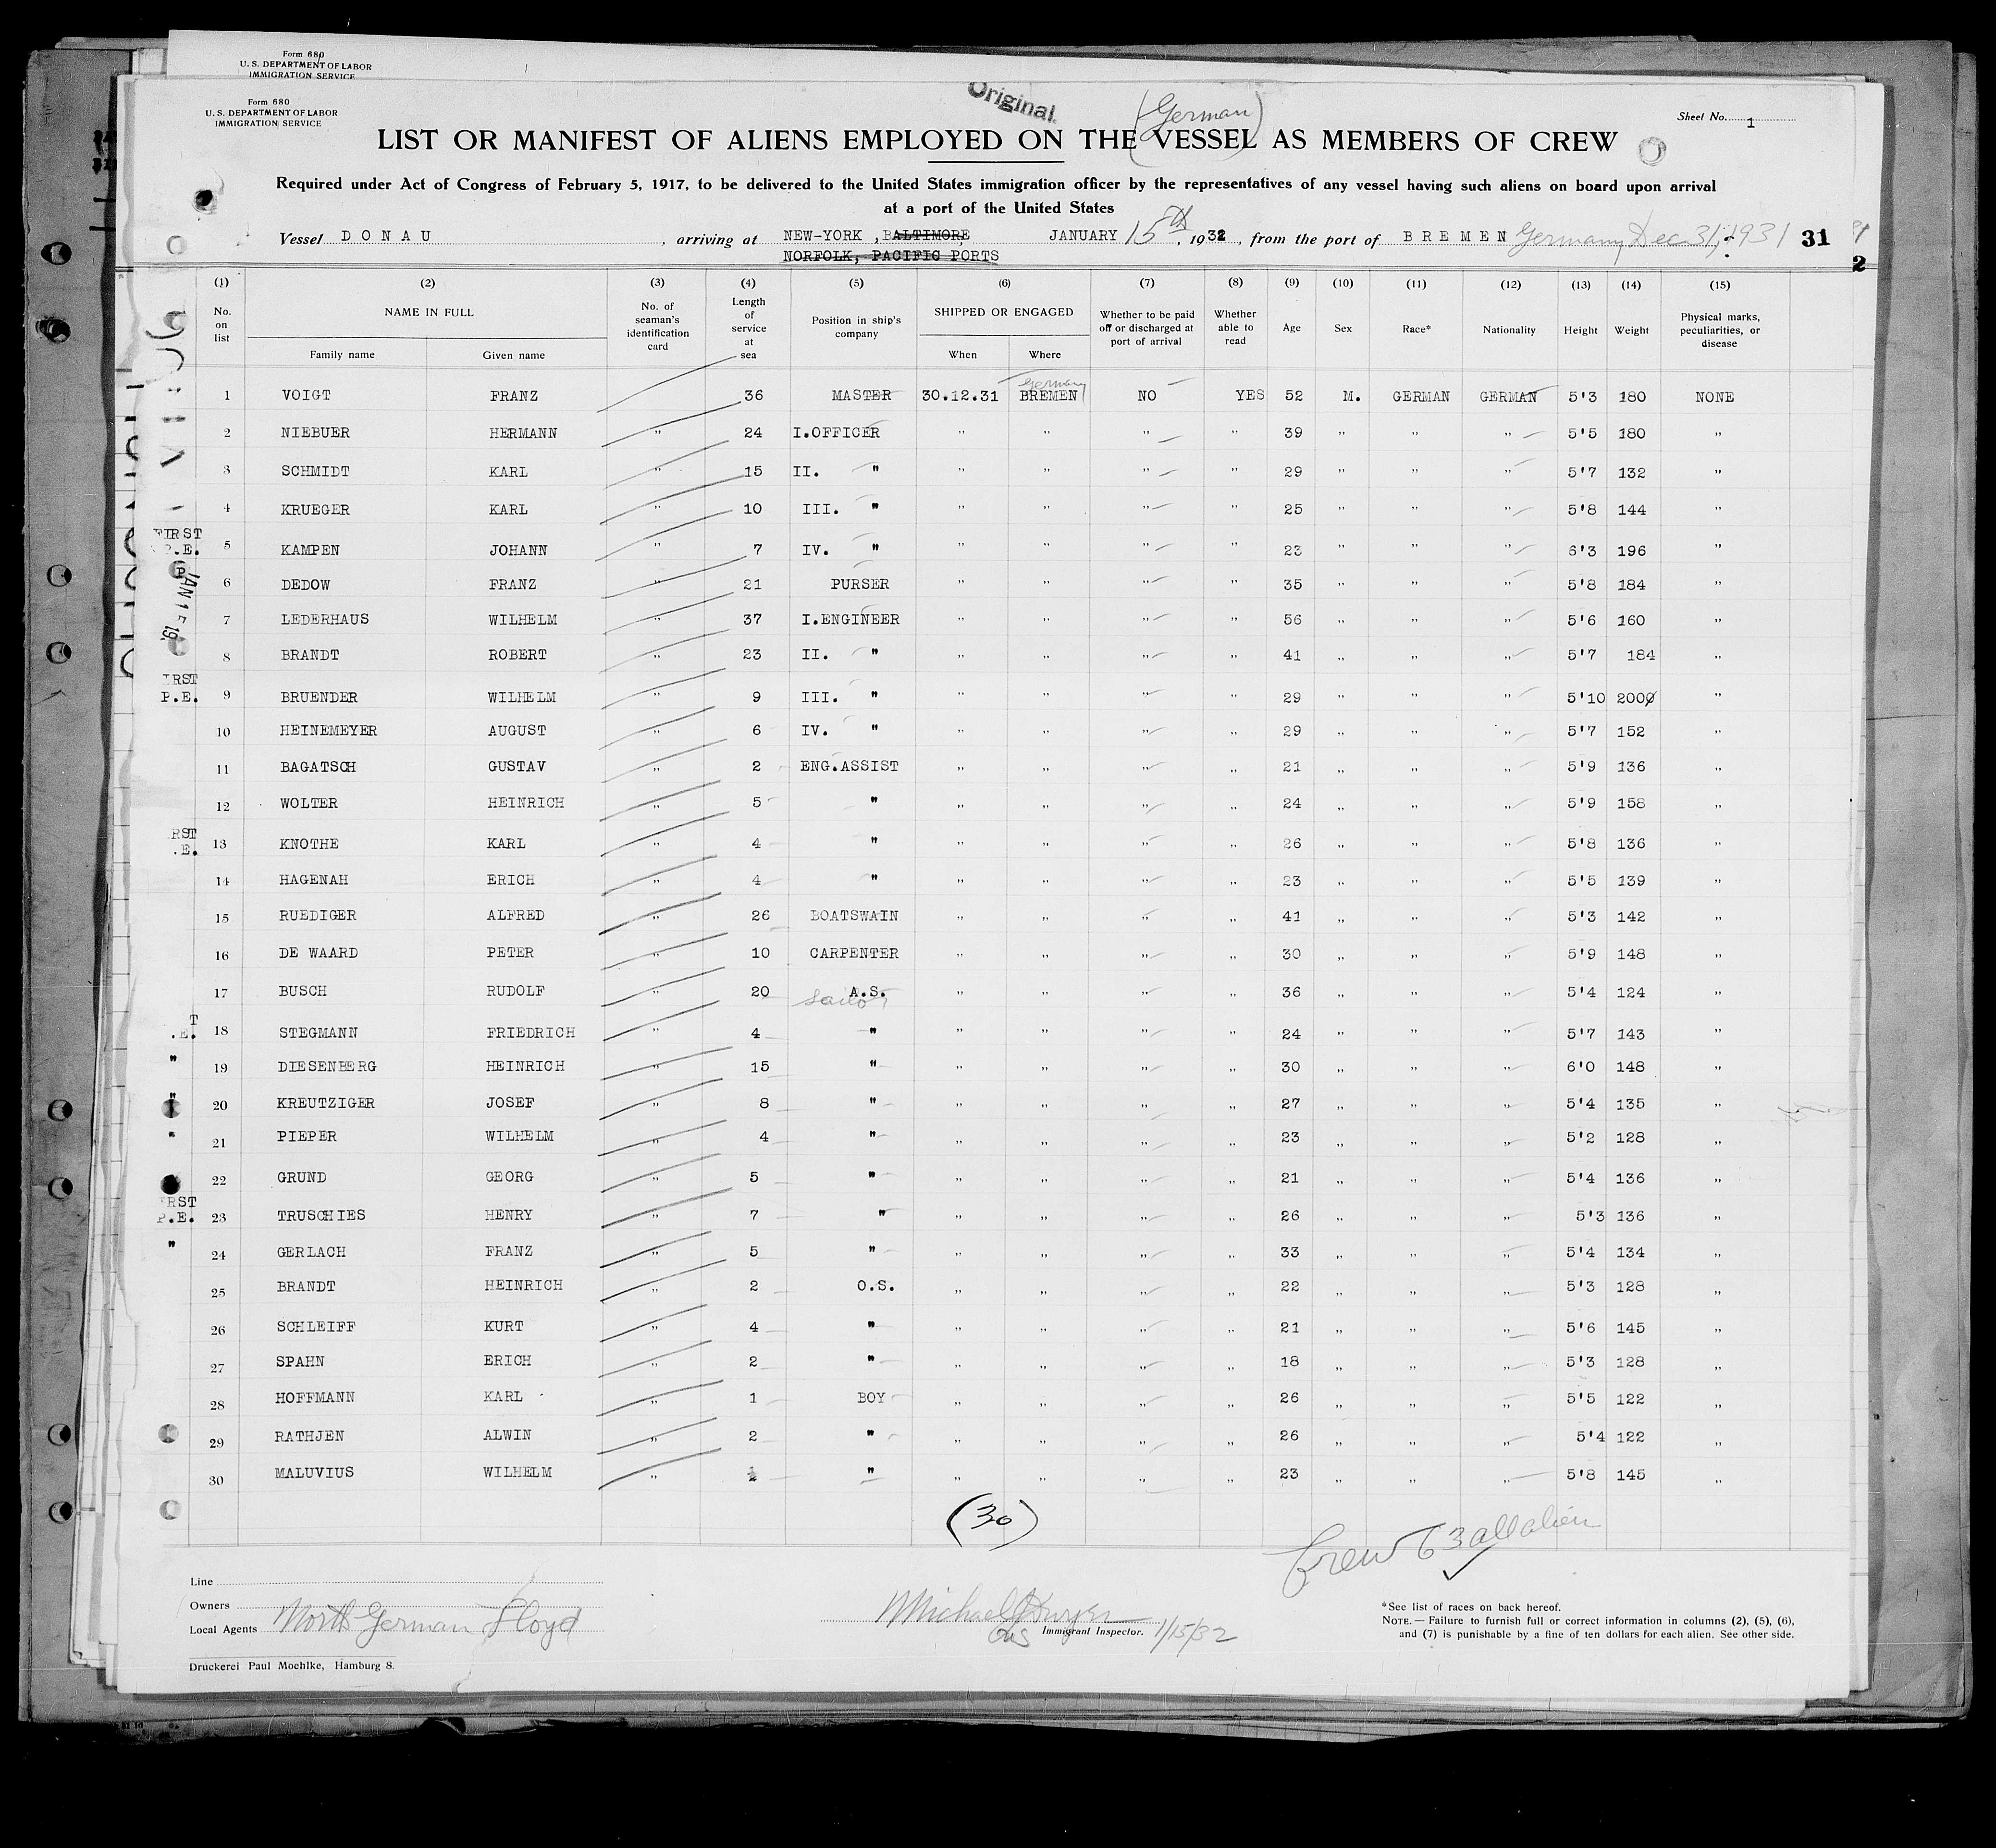 Form 680
U. S. DEPARTMENT OF LABOR
IMMIGRATION SERVICE
Form 680
U. S. DEPARTMENT OF LABOR
IMMIGRATION SERVICE
Original
(German)
Sheet No. 1
LIST OR MANIFEST OF ALIENS EMPLOYED ON THE VESSEL AS MEMBERS OF CREW
Required under Act of Congress of February 5, 1917, to be delivered to the United States immigration officer by the representatives of any vessel having such aliens on board upon arrival
at a port of the United States
Vessel DONAU, arriving at NEW-YORK, BALTIMORE, JANUARY 15th, 1932, from the port of BREMEN Germany Dec 31, 1931 31
NORFOLK, PACIFIC PORTS 2
(1) (2) (3) (4) (5) (6) (7) (8) (9) (10) (11) (12) (13) (14) (15)
No. on list NAME IN FULL Family name Given name No. of seaman's identification card Length of service at sea Position in ship's company SHIPPED OR ENGAGED When Where Whether to be paid off or discharged at port of arrival Whether able to read Age Sex Race* Nationality Height Weight Physical marks, peculiarities, or disease
Germany
1 VOIGT FRANZ 36 MASTER 30.12.31 BREMEN NO YES 52 M. GERMAN GERMAN 5'3 180 NONE
2 NIEBUER HERMANN " 24 I.OFFICER " " " " 39 " " " 5'5 180 "
3 SCHMIDT KARL " 15 II. " " " " " 29 " " " 5'7 132 "
4 KRUEGER KARL " 10 III. " " " " " 25 " " " 5'8 144 "
FIRST
P.E. 5 KAMPEN JOHANN " 7 IV. " " " " " 23 " " " 6'3 196 "
6 DEDOW FRANZ " 21 PURSER " " " " 35 " " " 5'8 184 "
7 LEDERHAUS WILHELM " 37 I.ENGINEER " " " " 56 " " " 5'6 160 "
8 BRANDT ROBERT " 23 II. " " " " " 41 " " " 5'7 184 "
IRST
P.E. 9 BRUENDER WILHELM " 9 III. " " " " " 29 " " " 5'10 2000 "
10 HEINEMEYER AUGUST " 6 IV. " " " " " 29 " " " 5'7 152 "
11 BAGATSCH GUSTAV " 2 ENG.ASSIST " " " " 21 " " " 5'9 136 "
12 WOLTER HEINRICH " 5 " " " " " 24 " " " 5'9 158 "
RST
.E. 13 KNOTHE KARL " 4 " " " " " 26 " " " 5'8 136 "
14 HAGENAH ERICH " 4 " " " " " 23 " " " 5'5 139 "
15 RUEDIGER ALFRED " 26 BOATSWAIN " " " " 41 " " " 5'3 142 "
16 DE WAARD PETER " 10 CARPENTER " " " " 30 " " " 5'9 148 "
17 BUSCH RUDOLF " 20 A.S. " " " " 36 " " " 5'4 124 "
Sailor
T
.E. 18 STEGMANN FRIEDRICH " 4 " " " " " 24 " " " 5'7 143 "
" 19 DIESENBERG HEINRICH " 15 " " " " " 30 " " " 6'0 148 "
" 20 KREUTZIGER JOSEF " 8 " " " " " 27 " " " 5'4 135 "
" 21 PIEPER WILHELM " 4 " " " " " 23 " " " 5'2 128 "
22 GRUND GEORG " 5 " " " " " 21 " " " 5'4 136 "
IRST
P.E. 23 TRUSCHIES HENRY " 7 " " " " " 26 " " " 5'3 136 "
" 24 GERLACH FRANZ " 5 " " " " " 33 " " " 5'4 134 "
25 BRANDT HEINRICH " 2 O.S. " " " " 22 " " " 5'3 128 "
26 SCHLEIFF KURT " 4 " " " " " 21 " " " 5'6 145 "
27 SPAHN ERICH " 2 " " " " " 18 " " " 5'3 128 "
28 HOFFMANN KARL " 1 BOY " " " " 26 " " " 5'5 122 "
29 RATHJEN ALWIN " 2 " " " " " 26 " " " 5'4 122 "
30 MALUVIUS WILHELM " " " " " " 23 " " " 5'8 145 "
(30)
Crew 63 all alien
Line
Owners
Local Agents North German Lloyd
Michael Dwyer
Immigrant Inspector. 1/15/32
*See list of races on back hereof.
NOTE.—Failure to furnish full or correct information in columns (2), (5), (6),
and (7) is punishable by a fine of ten dollars for each alien. See other side.
Druckerei Paul Moehlke, Hamburg 8.